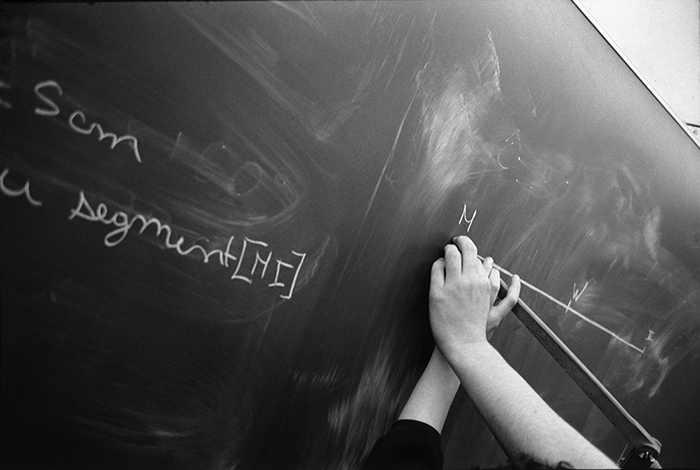 5cm
u segment [MI]
M
W
I